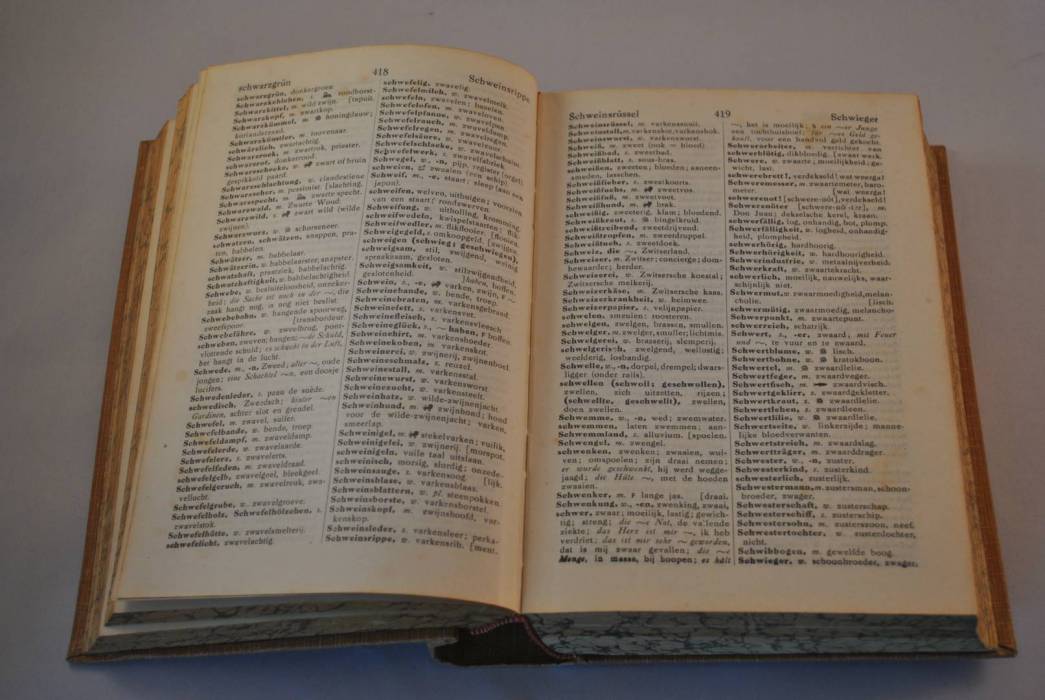 schwarzgrün 418 Schweinsrippe
schwarzgrün, donkergroen
Schwarzkehlchen, s. roodborst-
Schwarzkittel, m. wild zwijn. [tapuit.
Schwarzkopf, m. zwartkop.
Schwarzkümmel, m. honingklauw;
korianderzaad.
Schwarzkünstler, m. toovenaar.
schwärzlich, zwartachtig.
Schwarzrock, m. zwartrok, priester.
schwarzrot, donkerrood.
Schwarzschecke, zwart of bruin
gespikkeld paard.
Schwarzschlachtung, w. clandestiene
Schwarzseher, m. pessimist [slachting.
Schwarzspecht, m. zwarte specht.
Schwarzwald, m. Zwarte Woud.
Schwarzwild, s. zwart wild (wilde
zwijnen).
Schwarzwurz, w. schorseneer.
schwatzen, schwätzen, snappen, pra-
ten, babbelen.
Schwätzer, m. babbelaar.
Schwätzerin, w. babbelaarster, snapster.
schwatzhaft, praatziek, babbelachtig.
Schwatzhaftigkeit, w. babbelachtigheid.
Schwebe, w. besluiteloosheid, onzeker-
heid; die Sache ist noch in der —, die
zaak hangt nog, is nog niet beslist
Schwebebahn, w. hangende spoorweg,
zweefspoor. [transbordeur.
Schwebefähre, w. zweefbrug, pont-
schweben, zweven; hangen; —de Schuld,
vlottende schuld; es schwebt in der Luft,
het hangt in de lucht.
Schwede, m., -n, Zweed; alter —, oude
jongen; eine Schachtel —n, een doosje
lucifers.
Schwedenleder, s. peau de suède.
schwedisch, Zweedsch; hinter —en
Gardinen, achter slot en grendel.
Schwefel, m. zwavel, sulfer.
Schwefelbande, w. bende, troep
Schwefeldampf, m. zwaveldamp.
Schwefelerde, w. zwavelaarde.
Schwefelerz, s. zwavelerts.
Schwefelfaden, m. zwaveldraad.
schwefelgelb, zwavelgeel, bleekgeel.
Schwefelgeruch, m. zwavelreuk, zwa-
vellucht.
Schwefelgrube, w. zwavelgroeve.
Schwefelholz, Schwefelhölzchen, s.
zwavelstok.
Schwefelhütte, w. zwavelsmelterij.
schwefelicht, zwavelachtig.
schwefelig, zwavelig.
Schwefelmilch, w. zwavelmelk.
schwefeln, zwavelen;
Schwefelofen, m. zwaveloven.
Schwefelpfanne, w. zwavelpan
Schwefelrauch, m. zwaveldamp.
Schwefelregen, m. zwavelregen.
Schwefelsäure, w. zwavelzuur.
Schwefelschlacke, w. zwavelschuim.
Schwefelwerk, s. zwavelfabriek.
Schwegel, w., -n, pijp, register (orgel).
schweien, zwaaien (een schip).
Schweif, m., -e, staart; sleep (aan een
japon).
schweifen, welven, uithuigen; voorzien
van een staart; rondzwerven.
Schweifung, w. uitholling, kromming.
schweifwedeln, kwispelstaarten;
Schweifwedler, m. flikflooier. [flooien.
Schweigegeld, s. omkoopgeld. [zwijgen.
schweigen (schwieg; geschwiegen),
schweigsam, stil, zwijgend, weinig
spraakzaam, gesloten.
Schweigsamkeit, w. stilzwijgendheid,
geslotenheid. [haben, boffen.
Schwein, s., -e, varken, zwijn, F —
Schweinebande, w. bende, troep.
Schweinebraten, m. varkensgebraad
Schweinefett, s. varkensvet.
Schweinefleisch, s. varkensvleesch
Schweineglück, s., — haben, F boffen
Schweinehirt, m. varkenshoeder.
Schweinekoben, m. varkenshok.
Schweinerei, w. zwijnerij, zwijnenboel
Schweineschmalz, s. reuzel.
Schweinestall, m. varkensstal
Schweinewurst, w. varkensworst
Schweinezucht, w. varkensteelt.
Schweinhatz, w. wilde-zwijnenjacht
Schweinhund, m. zwijnhond; hond
voor de wilde-zwijnenjacht; varken,
smeerlap.
Schweinigel, m. stekelvarken; vuilik
Schweinigelei, w. zwijnerij. [morspot,
schweinigeln, vuile taal uitslaan.
schweinisch, morsig, slordig; onzede-
Schweinsauge, s. varkensoog [lijk.
Schweinsblase, w. varkensblaas.
Schweinsblattern, w. pl. steenpokken.
Schweinsborste, w. varkensborstel.
Schweinskopf, m. zwijnshoofd, var-
kenskop.
Schweinsleder, s. varkensleer; perka-
Schweinsrippe, w. varkensrib. [ment.
Schweinsrüssel 419 Schwieger
Schweinsrüssel, m. varkenssnuit.
Schweinsstall, m. varkenshok.
Schweinswurst, w. varkensworst.
Schweiß, m. zweet (ook = bloed)
Schweißbad, s. zweetbad.
Schweißblatt, s. sous-bras.
schweißen, zweeten; bloeden; aaneen-
smeden, lasschen.
Schweißfieber, s. zweetkoorts.
Schweißfuchs, m. zweetvos.
Schweißfuß, m. zweetvoet.
Schweißhund, m. brak.
schweißig, zweeterig, klam; bloedend.
Schweißkraut, s. bingelkruid.
schweißtreibend, zweetdrijvend.
Schweißtropfen, m. zweetdruppel.
Schweißtuch, s. zweetdoek.
Schweiz, die —, Zwitserland.
Schweizer, m. Zwitser; concierge; dom-
bewaarder; herder.
Schweizerei, w. Zwitsersche koestal;
Zwitsersche melkerij.
Schweizerkäse, m. Zwitsersche kaas.
Schweizerkrankheit, w. heimwee.
Schweizerpapier, s. velijnpapier.
schwelen, smeulen; roosteren.
schwelgen, zwelgen, brassen, smullen.
Schwelger, m. zwelger, smuller; lichtmis.
Schwelgerei, w. brasserij, slemperij.
schwelgerisch, zwelgend, wellustig;
weelderig, losbandig.
Schwelle, w., -n, dorpel, drempel; dwars-
ligger (onder rails).
schwellen (schwoll; geschwollen),
zwellen, zich uitzetten, rijzen;
(schwellte, geschwellt), zwellen,
doen zwellen.
Schwemme, w., -n, wed; zwemwater.
schwemmen, laten zwemmen; aan-
Schwemmland, s. alluvium. [spoelen.
Schwengel, m. zwengel.
schwenken, zwenken; zwaaien, wui-
ven; omspoelen; zijn draai nemen;
er wurde geschwenkt, hij werd wegge-
jaagd; die Hüte —, met de hoeden
zwaaien.
Schwenker, m. F lange jas. [draai.
Schwenkung, w., -en, zwenking, zwaai,
schwer, zwaar; moeilijk, lastig; gewich-
tig; streng; die —e Not, de vallende
ziekte; das Herz ist mir —, ik heb
verdriet; das ist mir sehr — geworden,
dat is mij zwaar gevallen; die —e
Menge, in massa, bij hoopen; es hält
—, het is moeilijk; —er Junge
een tuchthuisboef;
voor een handvol geld gekocht.
Schwerarbeiter, m. verrichter van
schwerblütig, dikbloedig. [zwaar werk.
Schwere, w. zwaarte; moeilijkheid; ge-
wicht, last.
schwerebrett!, verdekseld! wat weerga!
Schweremesser, m. zwaartemeter, baro-
meter. [wat weerga!
schwerenot! [schwere-nôt], verdekseld!
Schwerenöter [schwere-nö-ter], m.
Don Juan; dekselsche kerel, kraan.
schwerfällig, log, onhandig, bot, plomp.
Schwerfälligkeit, w. logheid, onhandig-
heid, plompheid.
schwerhörig, hardhoorig.
Schwerhörigkeit, w. hardhoorigheid.
Schwerindustrie, w. metaalnijverheid.
Schwerkraft, w. zwaartekracht.
schwerlich, moeilijk, nauwelijks, waar-
schijnlijk niet.
Schwermut, w. zwaarmoedigheid, melan-
cholie. [lisch.
schwermütig, zwaarmoedig, melancho-
Schwerpunkt, m. zwaartepunt.
schwerreich, schatrijk.
Schwert, s., -er, zwaard; mit Feuer
und —, te vuur en te zwaard.
Schwertblume, w. lisch.
Schwertbohne, w. kratokboon.
Schwertel, m. zwaardlelie.
Schwertfeger, m. zwaardveger.
Schwertfisch, m. zwaardvisch.
Schwertgeklirr, s. zwaardgekletter.
Schwertkraut, s. zwaardlelie.
Schwertlehen, s. zwaardleen.
Schwertlilie, w. zwaardlelie.
Schwertseite, w. linkerzijde; manne-
lijke bloedverwanten.
Schwertstreich, m. zwaardslag.
Schwertträger, m. zwaarddrager.
Schwester, w., -n, zuster.
Schwesterkind, s. zusterkind.
schwesterlich, zusterlijk.
Schwestermann, m. zustersman, schoon-
broeder, zwager.
Schwesterschaft, w. zusterschap.
Schwesterschiff, s. zusterschip.
Schwestersohn, m. zusterszoon, neef.
Schwestertochter, w. zustersdochter,
nicht.
Schwibbogen, m. gewelfde boog.
Schwieger, w. schoonbroeder, zwager.